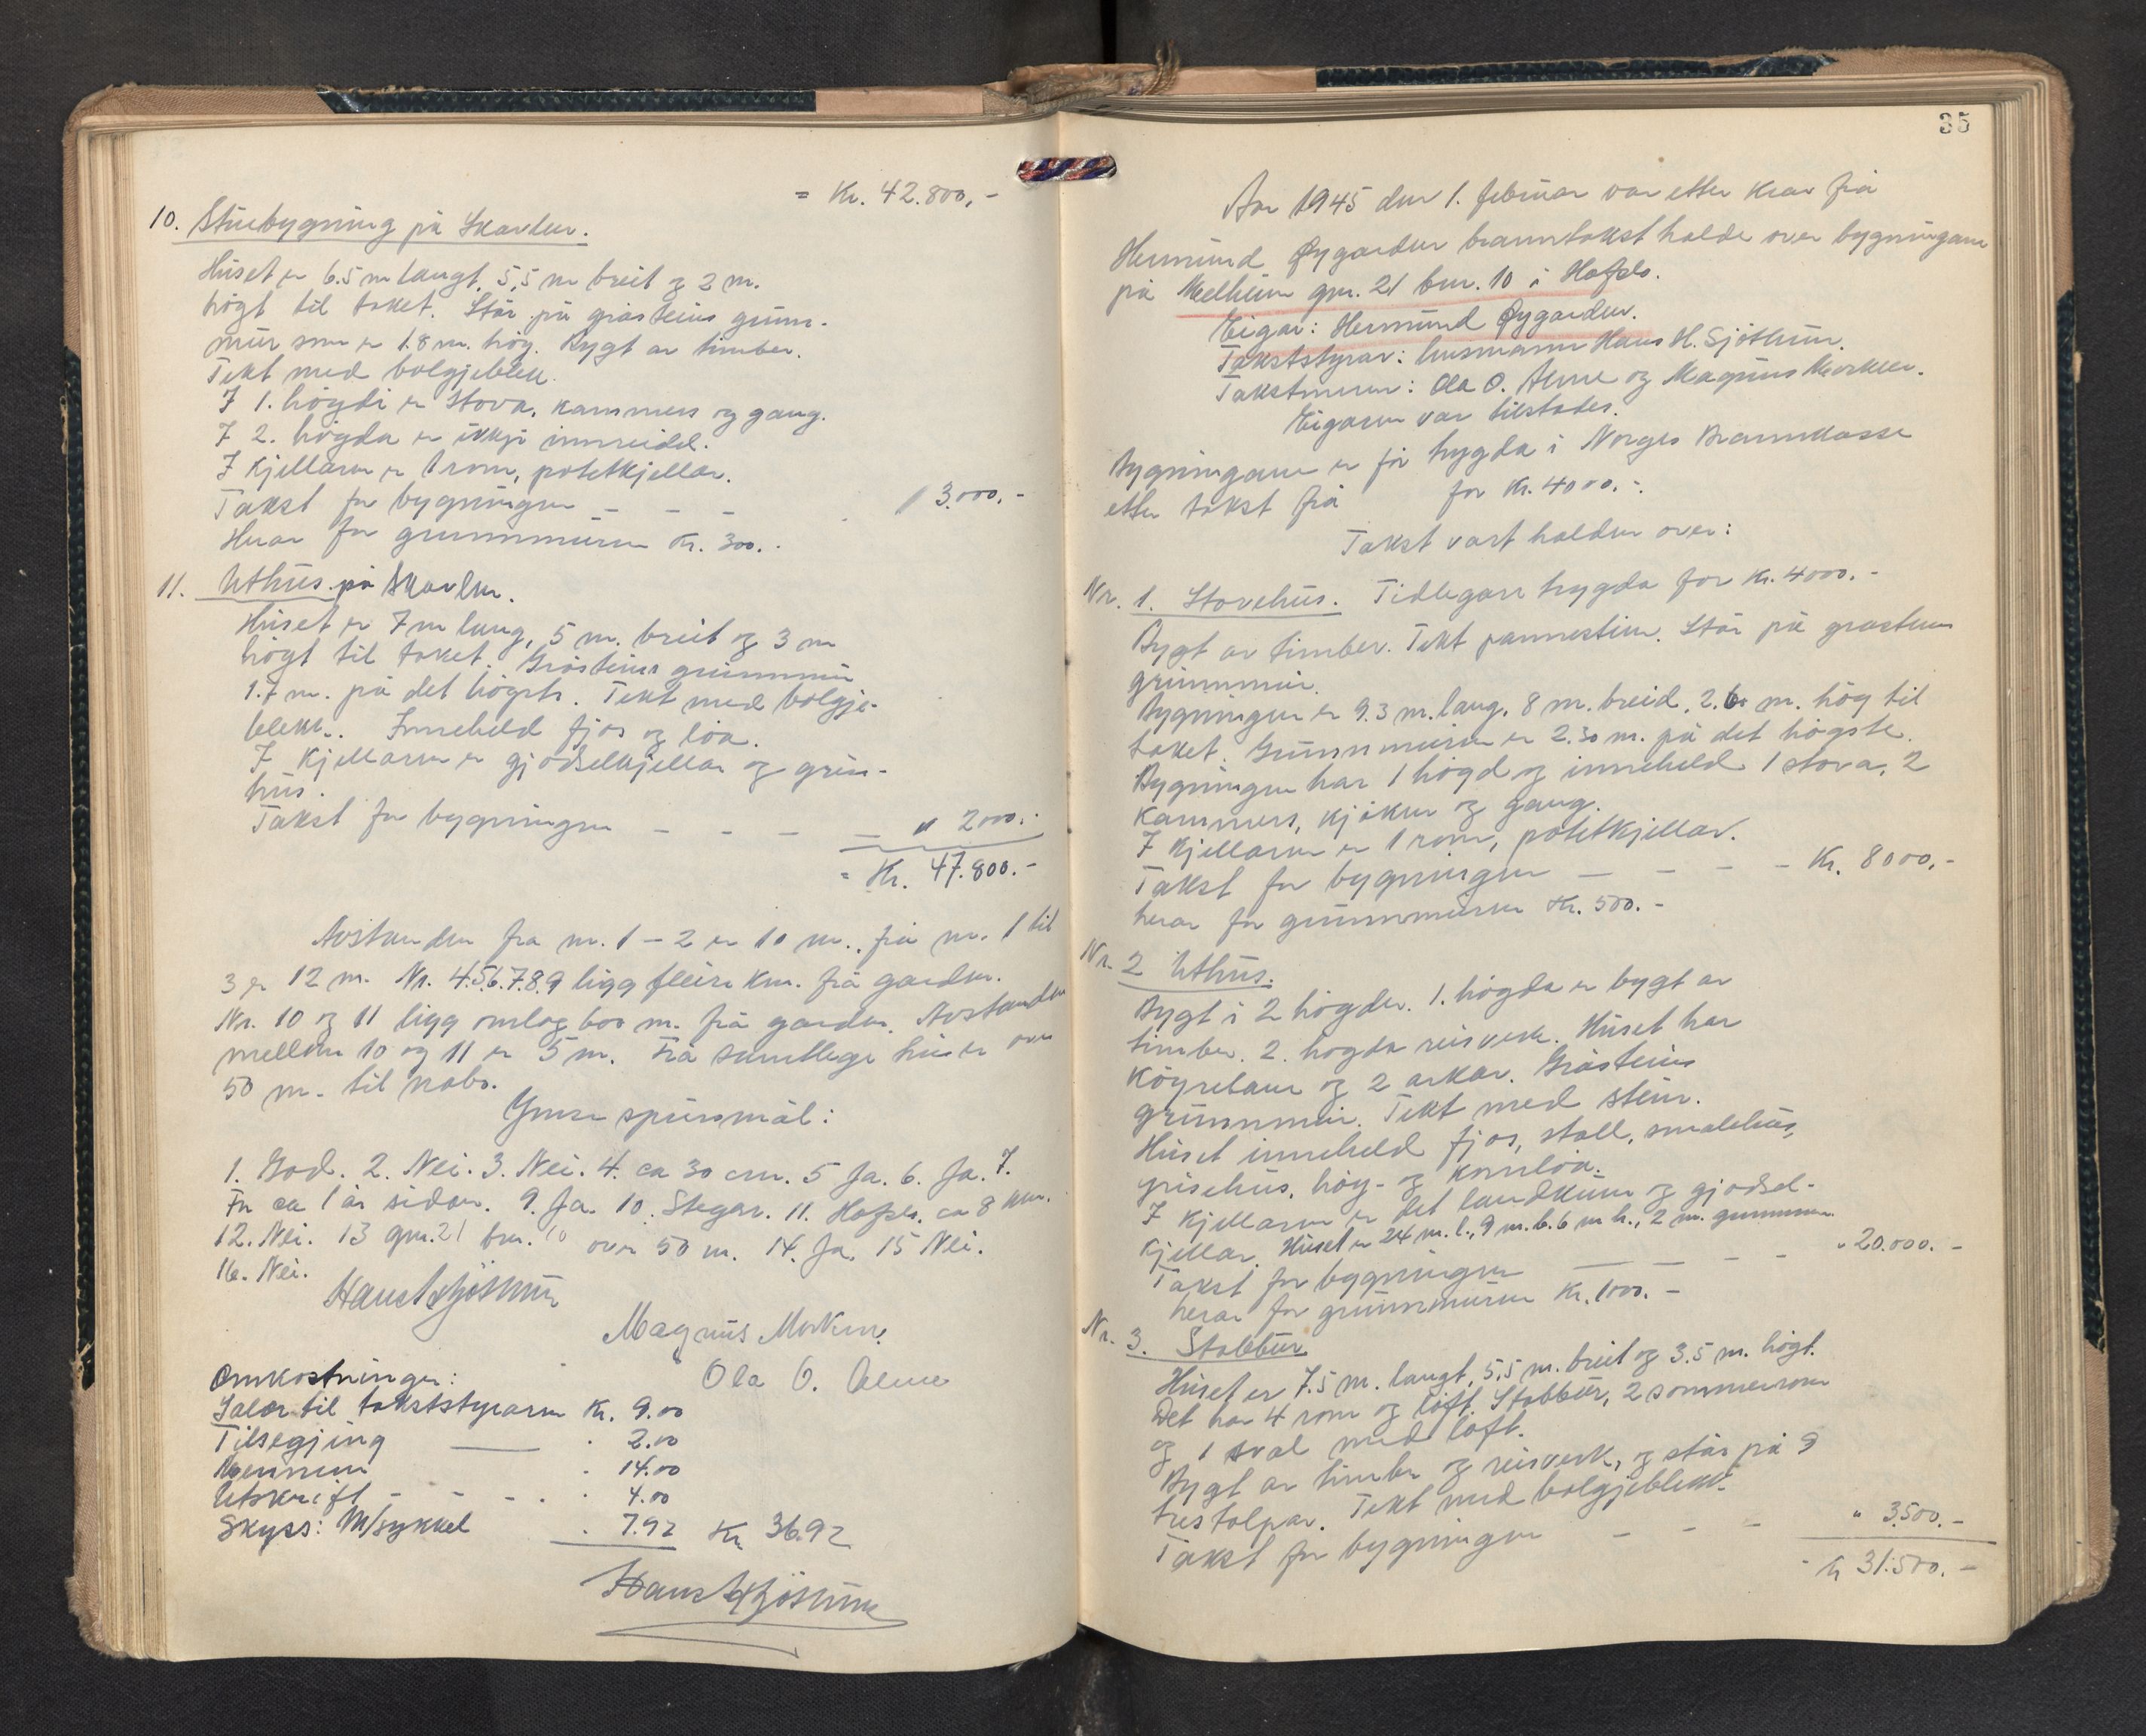 = Kr. 42.800,-
10. Stuebygning på Skavlen.
Huset er 6.5 m langt, 5,5 m breit og 2 m.
högt til taket. Står på gråsteins grunn-
mur som er 1.8 m. hög. Bygt av timber.
Tekt med bolgjeblekk.
I 1. högdi er stova, kammers og gang.
I 2. högda er ikkje innreidd.
I kjellaren er 1 rom, potetkjellar.
Takst for bygningen - - - " 3.000.-
Herav for grunnmuren Kr. 300.-
11. Uthus på Skavlen.
Huset er 7 m lang, 5 m. breit og 3 m
högt til taket. Gråsteins grunnmur
1.7 m. på det högste. Tekt med bolgje-
blekk. Inneheld fjos og löa.
I kjellaren er gjödselkjellar og gris-
hus.
Takst for bygningen - - - - " 2000.-
= Kr. 47.800.-
Avstanden fra nr. 1 - 2 er 10 m., frå nr. 1 til
3 er 12 m. Nr. 4.5.6.7.8.9 ligg fleire km. frå garden.
Nr. 10 og 11 ligg omlag 600 m. frå garden. Avstanden
mellom 10 og 11 er 5 m. Frå samtlege hus er over
50 m. til nabo.
Ymse spursmål:
1. God. 2. Nei. 3. Nei. 4. ca 30 cm. 5 Ja. 6. Ja. 7.
For ca 1 år sidan. 9. Ja. 10. Stegar. 11. Hafslo. ca 8 km.
12. Nei. 13 gnr. 21 bnr. 10 over 50 m. 14. Ja. 15 Nei.
16. Nei.
Hans H Sjöthun
Magnus Morken.
Ola O. Alme
Omkostninger:
Salær til takststyraren Kr. 9.00
Tilsegjing — " 2.00
Mennene " 14.00
Utskrift - - - " 4.00
Skyss: M/sykkel " 7.92 Kr 36.92
Hans H Sjöthun
35
Aar 1945 den 1. februar var etter krav frå
Hermund Øygarden branntakst halde over bygningane
på Medheim gnr. 21 bnr. 10 i Hafslo.
Eigar: Hermund Øygarden.
Takststyrar: lensmann Hans H. Sjöthun.
Takstmenn: Ola O. Alme og Magnus Morken.
Eigaren var tilstades.
Bygningane er för trygda i Norges Brannkasse
etter takst frå for Kr. 4000.-.
Takst vart halden over:
Nr. 1. Stovehus. Tidlegare trygda for Kr. 4000.-
Bygt av timber. Tekt pannestein. Står på gråsteins
grunnmur.
Bygningen er 9.3 m. lang, 8 m. breid, 2.60 m. hög til
taket. Grunnmuren er 2.30 m. på det högste.
Bygningen har 1 högd og inneheld 1 stova, 2
kammers, kjöken og gang.
I kjellaren er 1 rom, potetkjellar.
Takst for bygningen - - - - Kr. 8000.-
herav for grunnmuren Kr. 500.-
Nr. 2 Uthus.
Bygt i 2 högder. 1. högda er bygt av
timber. 2. högda reisverk. Huset har
köyrebane og 2 arkar. Gråsteins
grunnmur. Tekt med stein.
Huset inneheld fjos, stall, smalehus,
grisehus, höy- og kornlöa.
I kjellaren er det landkum og gjödsel-
kjellar. Huset er 24 m. l., 9 m. b. 6 m h., 2 m. grunnmur.
Takst for bygningen - - - - " 20.000.-
herav for grunnmuren Kr. 1000.-
Nr. 3. Stabbur
Huset er 7.5 m. langt, 5,5 m. breit og 3.5 m. högt.
Det har 4 rom og loft. Stabbur, 2 sommerrom
og 1 sval med loft.
Bygt av timber og reisverk, og står på 9
trestolpar. Tekt med bolgjeblekk.
Takst for bygningen - - - " 3.500.-
- Kr 31.500.-